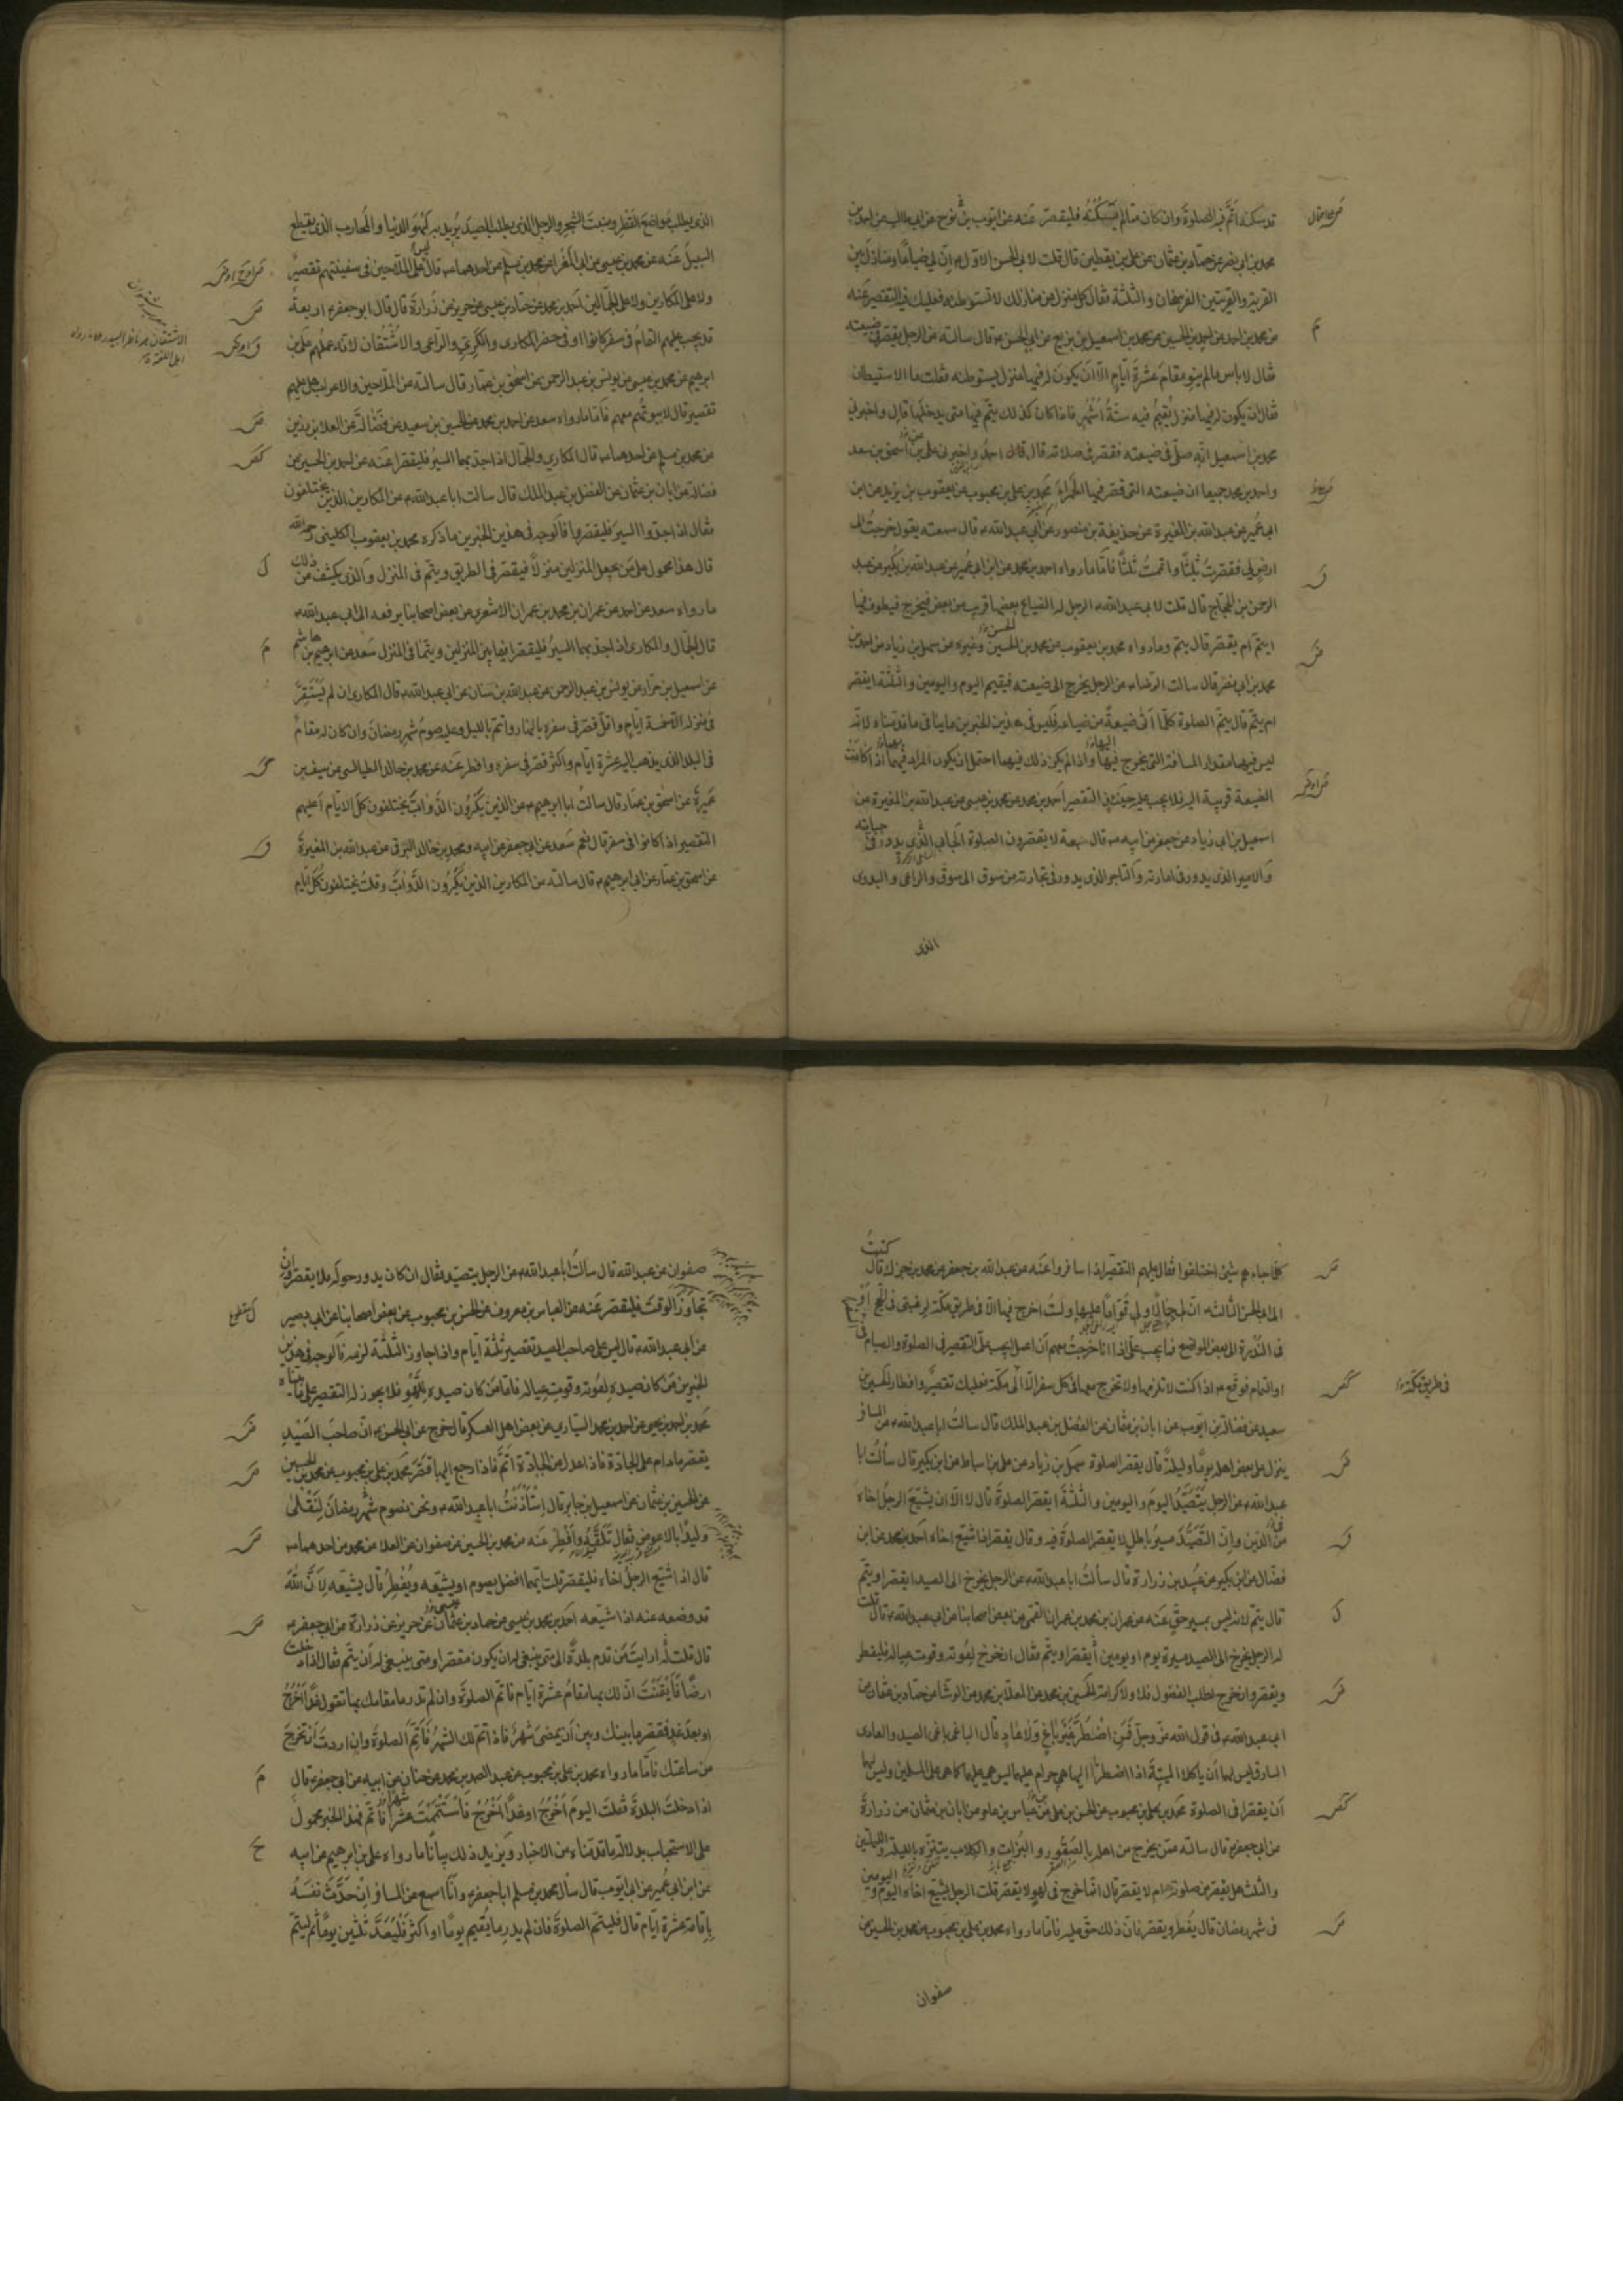 قد سكنه اتمّ فيه الصلوة وان كان مما لم يسكنه فليقصر عنه عن ايوب بن نوح عن ابي طالب عن احمد بن
محمد بن ابي نصر عن حماد بن عثمان عن علي بن يقطين قال قلت لابي الحسن الاول ان لي ضياعا ومنازل بين
القرية والقريتين الفرسخان والثلثة فقال كل منزل من منازلك لا تستوطنه فعليك فيه التقصير عنه
عن محمد بن احمد عن محمد بن اسمعيل بن بزيع عن ابي الحسن قال سالته عن الرجل يقصر في ضيعته
فقال لا باس ما لم ينو مقام عشرة ايّام الّا ان يكون له فيها منزل يستوطنه فقلت ما الاستيطان
فقال ان يكون له فيها منزل يُقيم فيه ستّة اشهر فاذا كان كذلك يتمّ فيها متى يدخلها قال واخبرني
محمد بن اسمعيل انّه صلّى في ضيعته فقصر في صلاته قال احمد واخبرني علي بن اسحق بن سعد
واحمد بن محمد جميعا ان ضيعته التي قصر فيها الحمراء محمد بن علي بن محبوب عن يعقوب بن يزيد عن ابن
ابي عمير عن عبد الله بن المغيرة عن حذيفة بن منصور عن ابي عبد الله قال سمعته يقول خرجت الى
ارض لي فقصرت ثلثا واتممت ثلثا فاما ما رواه احمد بن محمد عن ابن ابي عمير عن عبد الله بن بكير عن عبد
الرحمن بن الحجاج قال قلت لابي عبد الله الرجل له الضياع بعضها قريب من بعض فيخرج فيطوف فيها
ايتمّ ام يقصر قال يتم وما رواه محمد بن يعقوب عن محمد بن الحسن وغيره عن سهل بن زياد عن احمد بن
محمد بن ابي نصر قال سالت الرضا عن الرجل يخرج الى ضيعته فيقيم اليوم واليومين والثلثة ايقصر
ام يتمّ قال يتمّ الصلوة كلّما اتى ضيعة من ضياعه فليس في هذين الخبرين ما ينافي ما قدمناه لانه
ليس فيهما مقدار المسافة التي يخرج فيها واذا لم يكن ذلك فيهما احتمل ان يكون المراد فيهما اذا كانت
الضيعة قريبة اليه فلا يجب عليه حينئذ التقصير احمد بن محمد عن محمد بن عيسى عن عبد الله بن المغيرة عن
اسمعيل بن ابي زياد عن جعفر عن ابيه قال سبعة لا يقصرون الصلوة الجابي الذي يدور في جبايته
والامير الذي يدور في امارته والتاجر الذي يدور في تجارته من سوق الى سوق والراعي والبدوي
الذي
الذي يطلب مواضع القطر ومنبت الشجر والرجل الذي يطلب الصيد يريد به لهو الدنيا والمحارب الذي يقطع
السبيل عنه عن محمد بن عيسى عن ابي المغرا عن محمد بن مسلم عن احدهما قال ليس على الملاحين في سفينتهم تقصير
ولا على المكارين ولا على الجمّالين احمد بن محمد عن حماد بن عيسى عن حريز عن زرارة قال قال ابو جعفر اربعة
قد يجب عليهم التمام في سفر كانوا او في حضر المكاري والكري والراعي والاشتقان لانه عملهم علي بن
ابرهيم عن محمد بن عيسى عن يونس بن عبد الرحمن عن اسحق بن عمار قال سالته عن الملاحين والاعراب هل عليهم
تقصير قال لا بيوتهم معهم فاما ما رواه سعد عن احمد بن محمد عن الحسين بن سعيد عن فضالة عن العلا بن رزين
عن محمد بن مسلم عن احدهما قال المكاري والجمال اذا جد بهما السير فليقصرا عنه عن احمد عن الحسين عن
فضالة عن ابان بن عثمان عن الفضل بن عبد الملك قال سالت ابا عبد الله عن المكارين الذين يختلفون
فقال اذا جدوا السير فليقصروا فالوجه في هذين الخبرين ما ذكره محمد بن يعقوب الكليني رحمه الله
قال هذا محمول على من يجعل المنزلين منزلا فيقصر في الطريق ويتم في المنزل والذي يكشف عن ذلك
ما رواه سعد عن احمد عن عمران بن محمد بن عمران الاشعري عن بعض اصحابنا يرفعه الى ابي عبد الله
قال الجمّال والمكاري اذا جد بهما السير فليقصرا فيما بين المنزلين ويتما في المنزل سعد عن ابرهيم بن هاشم
عن اسمعيل بن مرار عن يونس بن عبد الرحمن عن عبد الله بن سنان عن ابي عبد الله قال المكاري ان لم يستقر
في منزله الا خمسة ايام واقل قصر في سفره بالنهار واتم بالليل وعليه صوم شهر رمضان وان كان له مقام
في البلد الذي يذهب اليه عشرة ايام واكثر قصر في سفره وافطر عنه عن محمد بن خالد الطيالسي عن سيف بن
عميرة عن اسحق بن عمار قال سالت ابا ابرهيم عن الذين يكرون الدواب يختلفون كل الايام اعليهم
التقصير اذا كانوا في سفر قال نعم سعد عن ابي جعفر عن ابيه ومحمد بن خالد البرقي عن عبد الله بن المغيرة
عن اسحق بن عمار عن ابي ابرهيم قال سالته عن المكارين الذين يكرون الدواب وقلت يختلفون كل ايام
كلما جاءهم شيء اختلفوا فقال عليهم التقصير اذا سافروا عنه عن عبد الله بن جعفر عن محمد بن جزك قال كتبت
الى ابي الحسن الثالث ان لي جمالا ولي قوّاما عليها ولست اخرج فيها الا في طريق مكة لرغبتي في الحج او
في الندرة الى بعض المواضع فما يجب علي اذا انا خرجت معهم ان اعمل ايجب علي التقصير في الصلوة والصيام في
او التمام فوقع اذا كنت لا تلزمها ولا تخرج معها في كل سفر الا الى مكة فعليك تقصير وافطار الحسين بن
في طريق مكة
سعيد عن فضالة بن ايوب عن ابان بن عثمان عن الفضل بن عبد الملك قال سالت ابا عبد الله عن المسافر
ينزل على بعض اهله يوما وليلة قال يقصر الصلوة سهل بن زياد عن علي بن اسباط عن ابن بكير قال سألت ابا
عبد الله عن الرجل يتصيد اليوم واليومين والثلثة ايقصر الصلوة قال لا الا ان يشيع الرجل اخاه
في الدين وان التصيد مسير باطل لا يقصر الصلوة فيه وقال يقصر اذا شيع اخاه احمد بن محمد عن ابن
فضال عن ابن بكير عن عبيد بن زرارة قال سألت ابا عبد الله عن الرجل يخرج الى الصيد ايقصر او يتم
قال يتم لانه ليس بمسير حق عنه عن عمران بن محمد بن عمران القمي عن بعض اصحابنا عن ابي عبد الله قال قلت
له الرجل يخرج الى الصيد مسيرة يوم او يومين أيقصر او يتم فقال ان خرج لقوته وقوت عياله فليفطر
ويقصر وان خرج لطلب الفضول فلا ولا كرامة الحسين بن محمد عن المعلا بن محمد عن الوشا عن حماد بن عثمان عن
ابي عبد الله في قول الله عز وجل فمن اضطر غير باغ ولا عاد قال الباغي باغي الصيد والعادي
السارق ليس لهما ان ياكلا الميتة اذا اضطرا اليها هي حرام عليهما ليس هي عليهما كما هي على المسلمين وليس لهما
ان يقصرا في الصلوة محمد بن علي بن محبوب عن الحسن بن علي عن عباس بن عامر عن ابان بن عثمان عن زرارة
عن ابي جعفر قال سالته عمن يخرج من اهله بالصقور والبزاة والكلاب يتنزه الليلة والليلتين
والثلث هل يقصر من صلوته ام لا يقصر قال انما خرج في لهو لا يقصر قلت الرجل يشيع اخاه اليوم واليومين
في شهر رمضان قال يفطر ويقصر فان ذلك حق عليه فاما ما رواه محمد بن علي بن محبوب عن محمد بن الحسين عن
صفوان
صفوان عن عبد الله قال سالت ابا عبد الله عن الرجل يتصيد فقال ان كان يدور حوله فلا يقصر وان
تجاوز الوقت فليقصر عنه عن العباس بن معروف عن الحسن بن محبوب عن بعض اصحابنا عن ابي بصير
عن ابي عبد الله قال ليس على صاحب الصيد تقصير ثلثة ايام واذا جاوز الثلثة لزمه فالوجه في هذين
الخبرين من كان صيده لقوته وقوت عياله فاما من كان صيده للهو فلا يجوز له التقصير على ما بيناه
محمد بن احمد بن يحيى عن احمد بن محمد السياري عن بعض اهل العسكر قال خرج عن ابي الحسن ان صاحب الصيد
يقصر ما دام على الجادة فاذا عدل عن الجادة اتم فاذا رجع اليها قصر محمد بن علي بن محبوب عن محمد بن الحسين
عن الحسين بن عثمان عن اسمعيل بن جابر قال استأذنت ابا عبد الله ونحن نصوم شهر رمضان لنلقى
وليدا بالاعوص فقال تلقه وافطر عنه عن محمد بن الحسين عن صفوان عن العلا عن محمد عن احدهما
قال اذا شيع الرجل اخاه فليقصر قلت ايهما افضل يصوم او يشيعه ويفطر قال يشيعه لان الله
قد وضعه عنه اذا شيعه احمد بن محمد عن حماد بن عيسى عن حريز عن زرارة عن ابي جعفر
قال قلت له ارايت من قدم بلدة الى متى ينبغي له ان يكون مقصرا ومتى ينبغي له ان يتم فقال اذا دخلت
ارضا فأيقنت ان لك بها مقام عشرة ايام فاتم الصلوة وان لم تدر ما مقامك بها تقول غدا اخرج
او بعد غد فقصر ما بينك وبين ان يمضي شهر فاذا تم لك الشهر فاتم الصلوة وان اردت ان تخرج
من ساعتك فاما ما رواه محمد بن علي بن محبوب عن عبد الصمد بن محمد عن حنان عن ابيه عن ابي جعفر قال
اذا دخلت البلدة فقلت اليوم اخرج او غدا اخرج فاستتممت عشرا فاتم فهذا الخبر محمول
على الاستحباب بدلالة ما قدمناه من الاخبار ويزيد ذلك بيانا ما رواه علي بن ابرهيم عن ابيه
عن ابن ابي عمير عن ابي ايوب قال سأل محمد بن مسلم ابا جعفر وانا اسمع عن المسافر ان حدث نفسه
باقامة عشرة ايام قال فليتم الصلوة فان لم يدر ما يقيم يوما او اكثر فليعد ثلثين يوما ثم ليتم